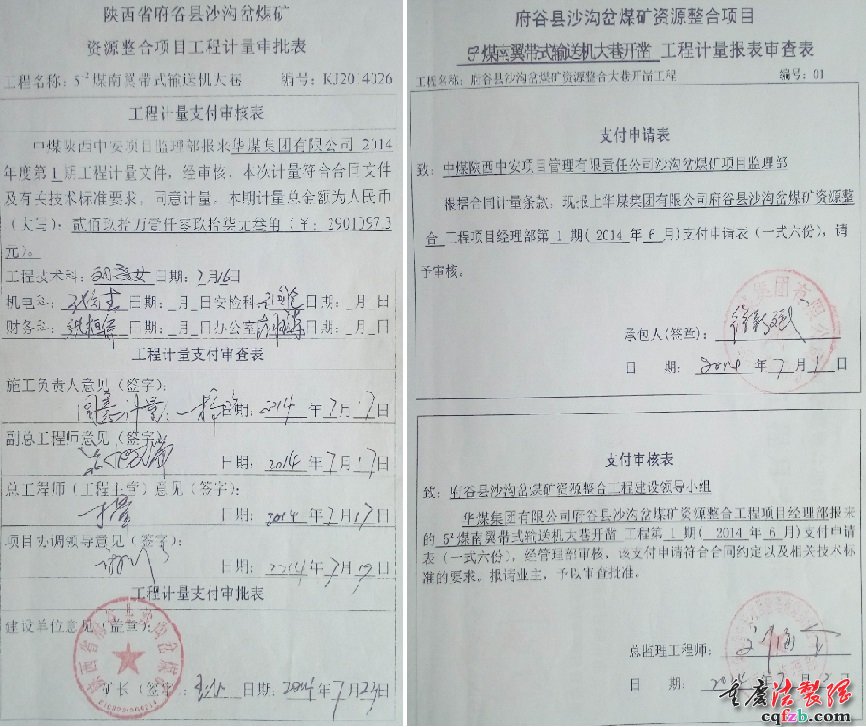 陕西省府谷县沙沟岔煤矿
资源整合项目工程计量审批表
工程名称：5⁻²煤南翼带式输送机大巷 编号：KJ2014026
工程计量支付审核表
中煤陕西中安项目监理部报来华煤集团有限公司 2014
年度第1期工程计量文件，经审核，本次计量符合合同文件
及有关技术标准要求，同意计量，本期计量总金额为人民币
（大写）：贰佰玖拾万壹仟零玖拾柒元叁角（￥：2901097.3
元）。
工程技术科： 日期：7月16日
机电科： 日期： 月 日安检科： 日期： 月 日
财务科： 日期： 月 日办公室 日期： 月 日
工程计量支付审查表
施工负责人意见（签字）：
同意计量 日期：2014 年 7 月 17 日
副总工程师意见（签字）
日期：2014 年 7 月 17 日
总工程师（工程主管）意见（签字）：
日期：2014 年 7 月 17 日
项目协调领导意见（签字）：
日期：2014 年 7 月 19 日
工程计量支付审批表
建设单位意见（盖章）：
矿长（签字）： 日期：2014 年 7 月 24 日
府谷县沙沟岔煤矿资源整合项目
5⁻²煤南翼带式输送机大巷开凿 工程计量报表审查表
工程名称：府谷县沙沟岔煤矿资源整合大巷开凿工程 编号：01
支付申请表
致：中煤陕西中安项目管理有限责任公司沙沟岔煤矿项目监理部
根据合同计量条款，现报上华煤集团有限公司府谷县沙沟岔煤矿资源整
合 工程项目经理部第 1 期（2014 年 6 月）支付申请表（一式六份），请
予审核。
承包人（签章）：
日 期：2014 年 7 月 1 日
支付审核表
致：府谷县沙沟岔煤矿资源整合工程建设领导小组
华煤集团有限公司府谷县沙沟岔煤矿资源整合工程项目经理部报来
的 5⁻²煤南翼带式输送机大巷开凿 工程第 1 期（2014 年 6 月）支付申请
表（一式六份），经管理部审核，该支付申请符合合同约定以及相关技术标
准的要求。报请业主，予以审查批准。
总监理工程师：
日 期：2014 年 7 月 2 日
重庆法制网
cqfzb.com